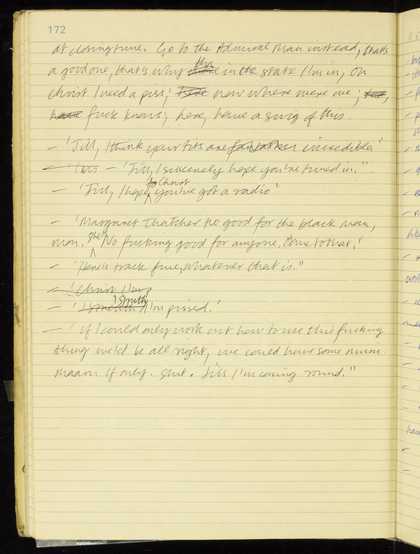 172
at closing time. Go to the Admiral Mann instead, thats
a good one, that's why this in the state I'm in, Oh
christ I need a piss; now where were we;
fuck knows; here, have a swig of this.
– 'Jill, I think your tits are fantastic incredible'
– 'Jill, I sincerely hope you're tuned in."
to Christ
– 'Jill, I hope you've got a radio'
– 'Margaret Thatcher no good for the black man,
man. She No fucking good for anyone, come to that,'
– 'Penis track five, whatever that is."
– 'Christ I'm
I Smith
– 'I'm pissed.'
– 'If I could only work out how to use this fucking
thing we'd be all right, we could have some more
If only. Shit. Jill I'm coming round."